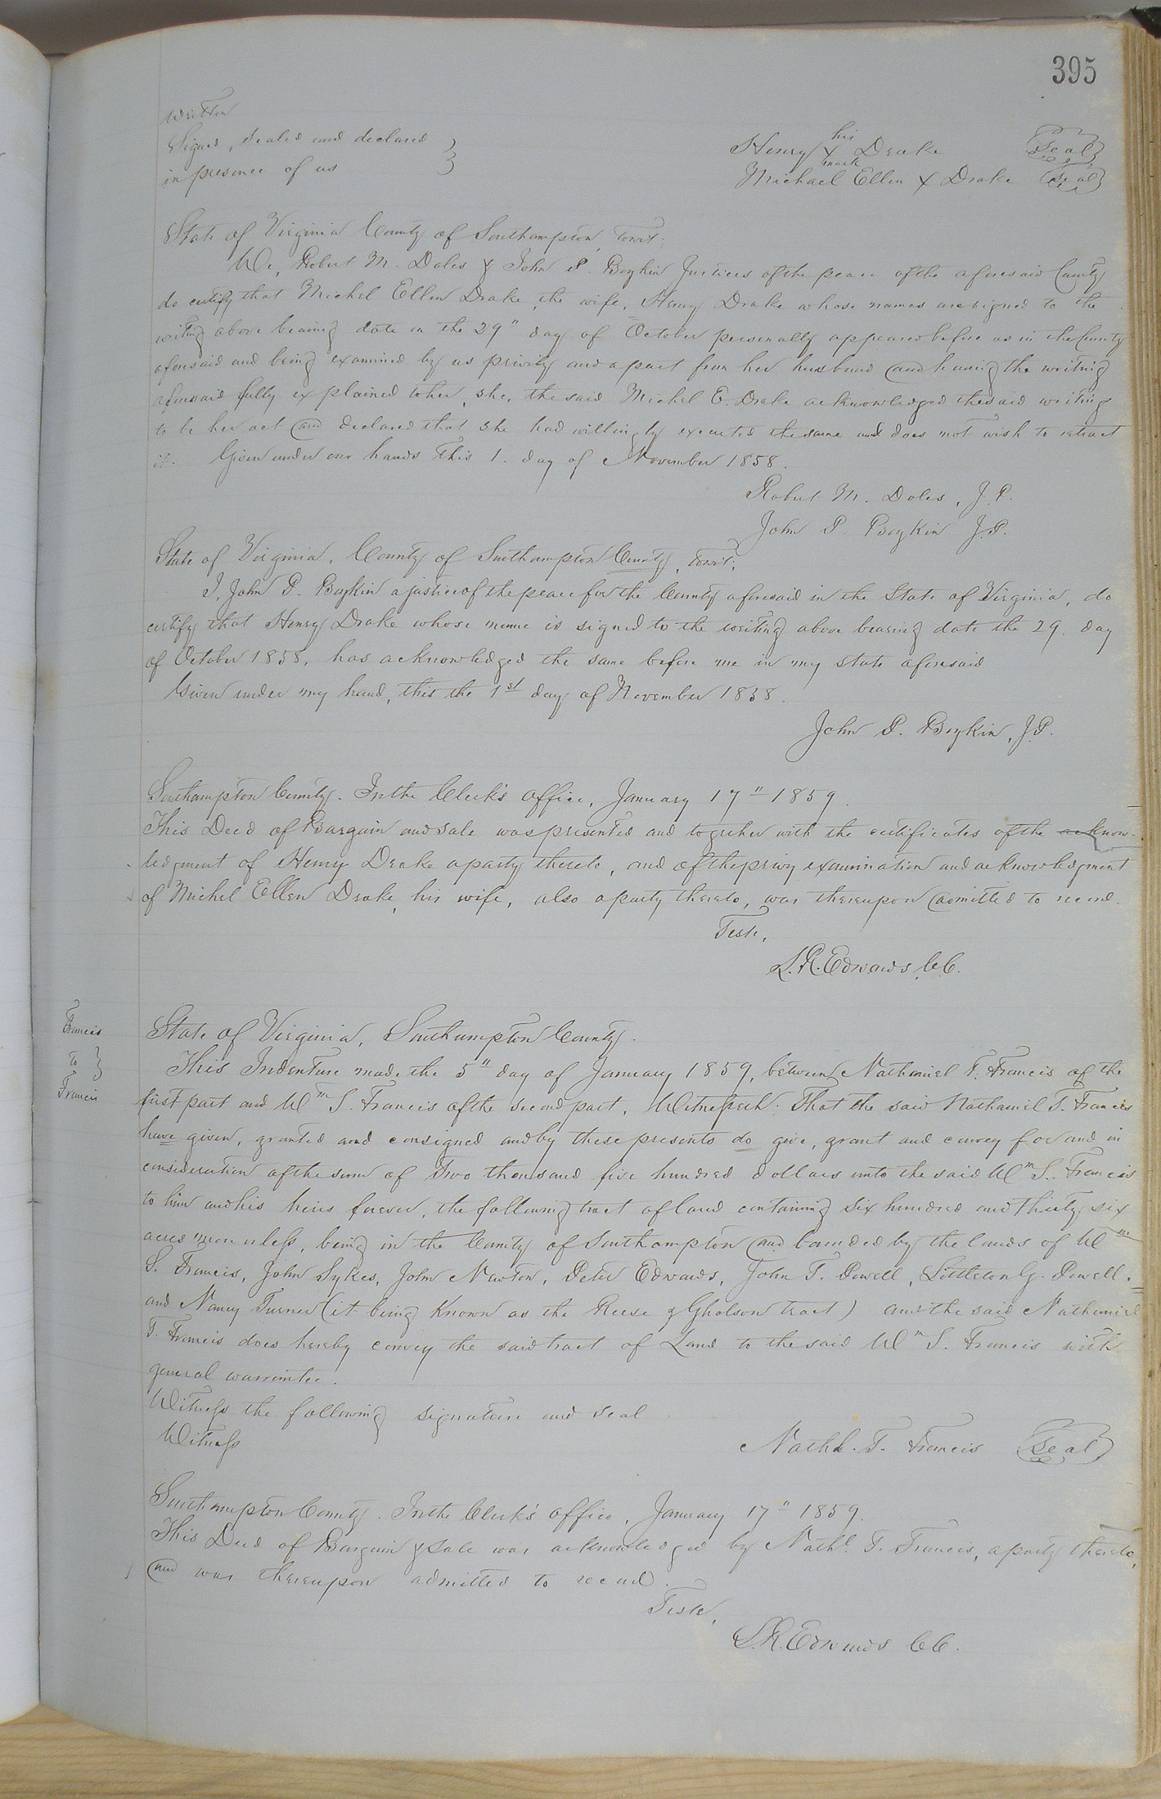 395
written
Signed, sealed and declared
in presence of us
his
Henry X Drake (Seal)
mark
Michael Ellen X Drake (Seal)
State of Virginia County of Southampton, towit:
We, Robert M. Doles & John P. Boykin Justices of the peace of the aforesaid County
do certify that Michel Ellen Drake, the wife, Henry Drake whose names are signed to the
writing above bearing date on the 29" day of October personally appeared before us in the county
aforesaid and being examined by us privily and apart from her husband and having the writing
aforesaid fully explained to her, she, the said Michel E. Drake acknowledged the said writing
to be her act and declared that she had willingly executed the same and does not wish to retract
it. Given under our hands this 1. day of November 1858.
Robert M. Doles, J.P.
John P. Boykin J.P.
State of Virginia, County of Southampton County, towit;
I, John P. Boykin a justice of the peace for the County aforesaid in the State of Virginia, do
certify that Henry Drake whose name is signed to the writing above bearing date the 29. day
of October 1858, has acknowledged the same before me in my state aforesaid
Given under my hand, this the 1st day of November 1858.
John P. Boykin, J.P.
Southampton County. In the Clerk's office, January 17" 1859.
This Deed of Bargain and sale was presented and together with the certificates of the acknow-
ledgment of Henry Drake a party thereto, and of the privy examination and acknowledgment
of Michel Ellen Drake, his wife, also a party thereto, was thereupon admitted to record.
Teste,
L.R. Edwards C.C.
Francis
to
Francis
State of Virginia, Southampton County.
This Indenture made the 5" day of January 1859, between Nathaniel T. Francis of the
first part and Wm S. Francis of the second part, Witnesseth: That the said Nathaniel T. Francis
have given, granted and consigned and by these presents do give, grant and convey for and in
consideration of the sum of two thousand five hundred dollars unto the said Wm S. Francis
to him and his heirs forever, the following tract of land containing six hundred and thirty six
acres more or less, being in the County of Southampton and bounded by the lands of Wm
S. Francis, John Sykes, John Newton, Peter Edwards, John T. Powell, Littleton G. Powell
and Nancy Turner (it being known as the Reese & Gholson tract) and the said Nathaniel
T. Francis does hereby convey the said tract of Land to the said Wm S. Francis with
general warrantee.
Witness the following signature and seal
Witness
Nathl. T. Francis (Seal)
Southampton County. In the Clerk's office, January 17" 1859.
This Deed of Bargain & Sale was acknowledged by Nathl. T. Francis, a party thereto,
and was thereupon admitted to record.
Teste,
L.R. Edwards C.C.